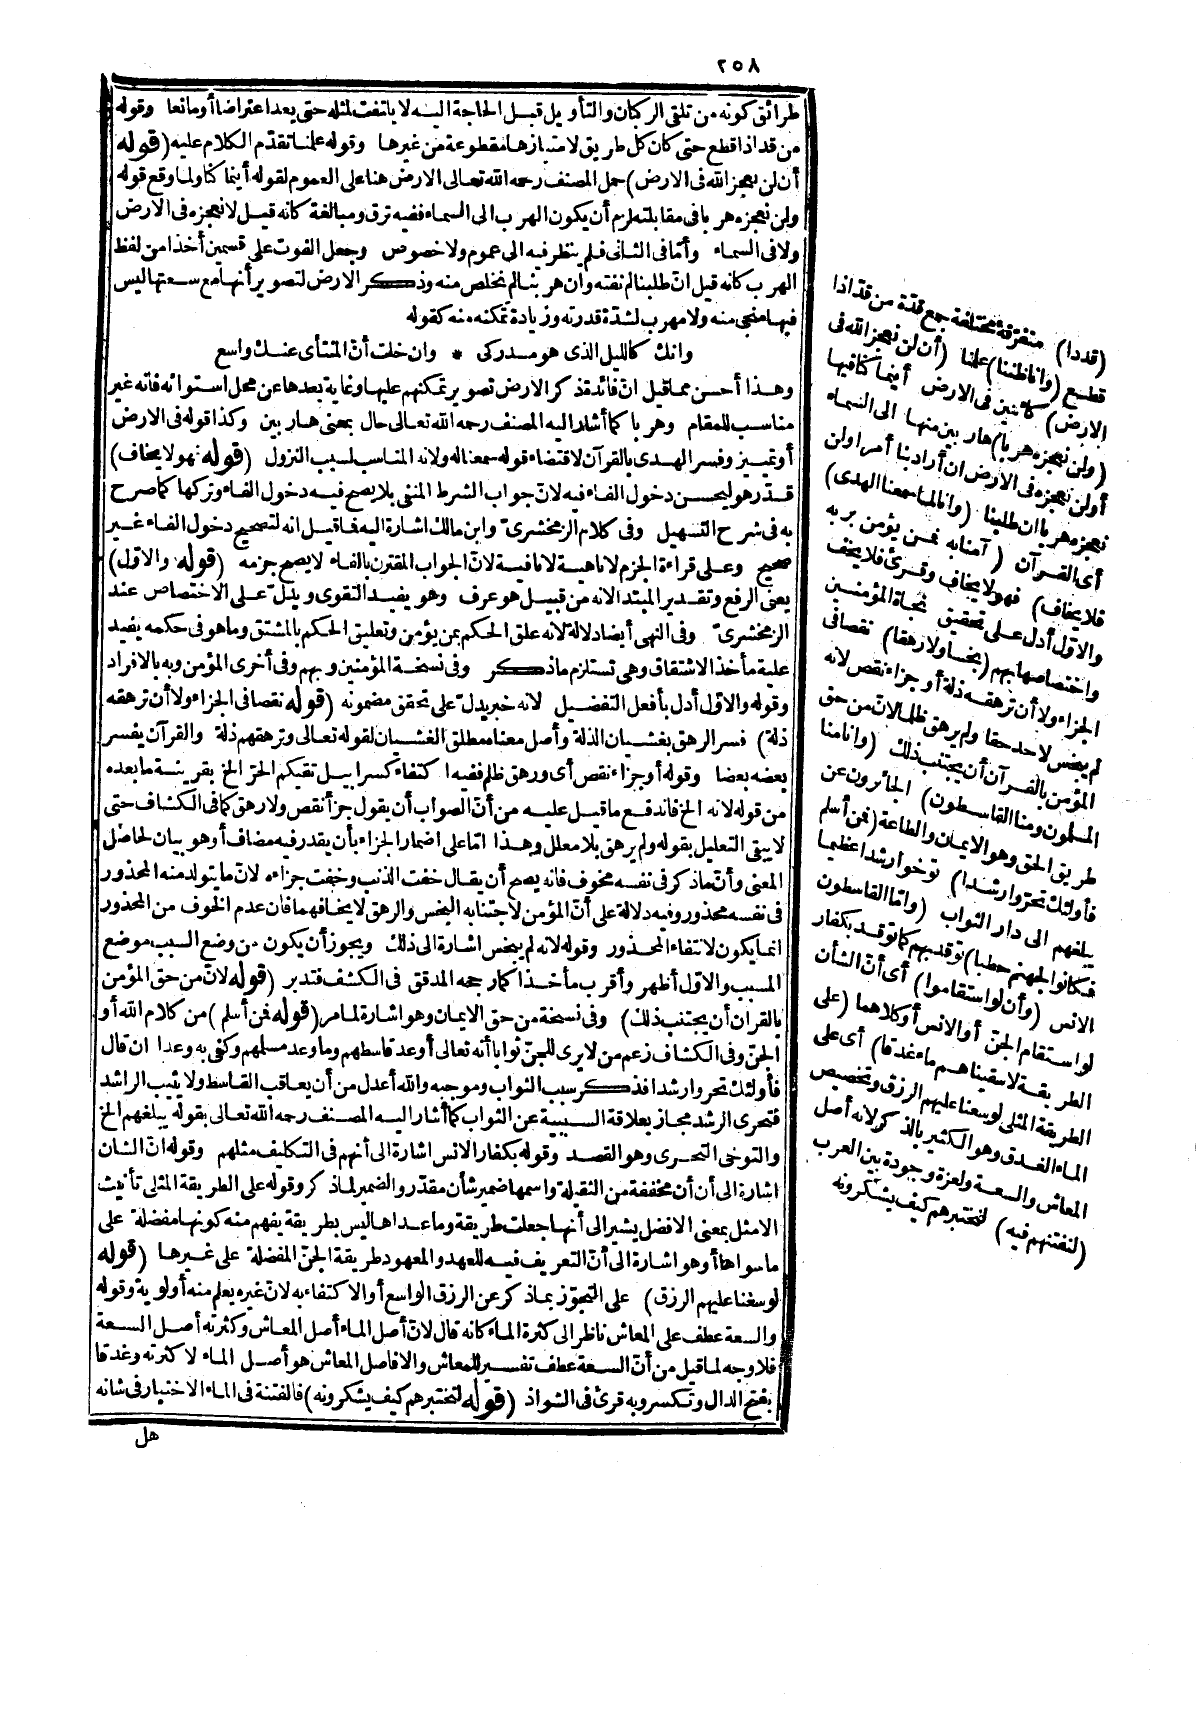 ٢٥٨
طرائق كونه من تلقى الركبان والتأويل قبل الحاجة اليه لا يلتفت لمثله حتى يعد اعتراضا أو مانعا وقوله
من قد اذا قطع حتى كان كل طريق لامتيازها مقطوعة من غيرها وقوله علمنا تقدّم الكلام عليه (قوله
أن لن نعجز الله فى الارض) حمل المصنف رحمه الله تعالى الارض هنا على العموم لقوله أينما كنا ولما وقع قوله
ولن نعجزه هربا فى مقابلته لزم أن يكون الهرب الى السماء ففيه ترق ومبالغة كانه قيل لا نعجزه فى الارض
ولا فى السماء وأمّا فى الثانى فلم ينظر فيه الى عموم ولا خصوص وجعل الفوت على قسمين أخذا من لفظ
الهرب كانه قيل انّ طلبنا لم نفته وان هربنا لم نخلص منه وذكر الارض لتصوير أنها مع سعتها ليس
فيها منجى منه ولا مهرب لشدّة قدرته وزيادة تمكنه منه كقوله
وانك كالليل الذى هو مدركى * وان خلت أنّ المنتأى عنك واسع
وهذا أحسن مما قيل انّ فائدة ذكر الارض تصوير تمكنهم عليها وغاية بعدها عن محل استوائه فانه غير
مناسب للمقام وهربا كما أشار اليه المصنف رحمه الله تعالى حال بمعنى هاربين وكذا قوله فى الارض
أو تمييز وفسر الهدى بالقرآن لاقتضاء قوله سمعنا له ولانه المناسب لسبب النزول (قوله فهو لا يخاف)
قدّر هو ليحسن دخول الفاء فيه لانّ جواب الشرط المنفى بلا يصح فيه دخول الفاء وتركها كما صرح
به فى شرح التسهيل وفى كلام الزمخشرى وابن مالك اشارة اليه فما قيل انه لتصحيح دخول الفاء غير
صحيح وعلى قراءة الجزم لا ناهية لا نافية لانّ الجواب المقترن بالفاء لا يصح جزمه (قوله والاوّل)
يعنى الرفع وتقدير المبتدا لانه من قبيل هو عرف وهو يفيد التقوى ويدلّ على الاختصاص عند
الزمخشرىّ وفى النهى أيضا دلالة لانه علق الحكم بمن يؤمن وتعليق الحكم بالمشتق وما هو فى حكمه يفيد
علية مأخذ الاشتقاق وهى تستلزم ما ذكر وفى نسخة المؤمنين وبهم وفى أخرى المؤمن وبه بالافراد
وقوله والاوّل أدل بأفعل التفضيل لانه خبر يدلّ على تحقق مضمونه (قوله نقصا فى الجزاء ولا أن ترهقه
ذلة) فسر الرهق بغشيان الذلة وأصل معناه مطلق الغشيان لقوله تعالى وترهقهم ذلة والقرآن يفسر
بعضه بعضا وقوله أو جزاء نقص أى ورهق ظلم ففيه اكتفاء كسرابيل تقيكم الحرّ الخ بقرينة ما بعده
من قوله لانه الخ فاندفع ما قيل عليه من أنّ الصواب أن يقول جزأ نقص ولا رهق كما فى الكشاف حتى
لا يبقى التعليل بقوله ولم يرهق بلا معلل وهذا امّا على اضمار الجزاء بأن يقدر فيه مضاف أو هو بيان لحاصل
المعنى وأنّ ما ذكر فى نفسه مخوف فانه يصح أن يقال خفت الذنب وخفت جزاءه لانّ ما يتولد منه المحذور
فى نفسه محذور وفيه دلالة على أنّ المؤمن لاجتنابه البخس والرهق لا يخافهما فان عدم الخوف من المحذور
انما يكون لانتفاء المحذور وقوله لانه لم يبخس اشارة الى ذلك ويجوز أن يكون من وضع السبب موضع
المسبب والاوّل أظهر وأقرب مأخذا كما رجحه المدقق فى الكشف فتدبر (قوله لانّ من حق المؤمن
بالقرآن أن يجتنب ذلك) وفى نسخة من حق الايمان وهو اشارة لما مر (قوله فمن أسلم) من كلام الله أو
الجنّ وفى الكشاف زعم من لا يرى للجنّ ثوابا أنه تعالى أوعد قاسطهم وما وعد مسلمهم وكفى به وعدا ان قال
فأولئك تحروا رشدا فذكر سبب الثواب وموجبه والله أعدل من أن يعاقب القاسط ولا يثيب الراشد
فتحرى الرشد مجاز بعلاقة السببية عن الثواب كما أشار اليه المصنف رحمه الله تعالى بقوله يبلغهم الخ
والتوخى التحرى وهو القصد وقوله بكفار الانس اشارة الى أنهم فى التكليف مثلهم وقوله انّ الشان
اشارة الى أن أن مخففة من الثقيلة واسمها ضمير شأن مقدّر والضمير لما ذكر وقوله على الطريقة المثلى تأنيث
الامثل بمعنى الافضل يشير الى أنها جعلت طريقة وما عداها ليس بطريقة يفهم منه كونها مفضلة على
ما سواها أو هو اشارة الى أنّ التعريف فيه للعهد والمعهود طريقة الجنّ المفضلة على غيرها (قوله
لوسعنا عليهم الرزق) على التجوّز بما ذكر عن الرزق الواسع أو الاكتفاء به لانّ غيره يعلم منه أولوية وقوله
والسعة عطف على المعاش ناظر الى كثرة الماء كانه قال لانّ أصل الماء أصل المعاش وكثرته أصل السعة
فلا وجه لما قيل من أنّ السعة عطف تفسير للمعاش والا فاصل المعاش هو أصل الماء لا كثرته وغدقا
بفتح الدال وتكسر وبه قرئ فى الشواذ (قوله لنختبرهم كيف يشكرونه) فالفتنة فى الماء الاختبار فى شانه
هل
(قددا) متفرقة مختلفة جمع قدّة من قدّ اذا
قطع (وانا ظننا) علمنا (أن لن نعجز الله فى
الارض) كائنين فى الارض أينما كنا فيها
(ولن نعجزه هربا) هاربين منها الى السماء
أولن نعجزه فى الارض ان أراد بنا أمرا ولن
نعجزه هربا ان طلبنا (وانا لما سمعنا الهدى)
أى القرآن (آمنا به فمن يؤمن بربه
فلا يخاف) فهو لا يخاف وقرئ فلا يخف
والاوّل أدل على تحقيق نجاة المؤمنين
واختصاصها بهم (بخسا ولا رهقا) نقصا فى
الجزاء ولا أن ترهقه ذلة أو جزاء نقص لانه
لم يبخس لاحد حقا ولم يرهق ظلما لانّ من حق
المؤمن بالقرآن أن يجتنب ذلك (وانا منا
المسلمون ومنا القاسطون) الجائرون عن
طريق الحق وهو الايمان والطاعة (فمن أسلم
فأولئك تحرّوا رشدا) توخوا رشدا عظيما
يبلغهم الى دار الثواب (وأمّا القاسطون
فكانوا لجهنم حطبا) توقد بهم كما توقد بكفار
الانس (وأن لو استقاموا) أى أنّ الشأن
لو استقام الجنّ أو الانس أو كلاهما (على
الطريقة لاسقيناهم ماء غدقا) أى على
الطريقة المثلى لوسعنا عليهم الرزق وتخصيص
الماء الغدق وهو الكثير بالذكر لانه أصل
المعاش والسعة ولعزة وجوده بين العرب
(لنفتنهم فيه) لنختبرهم كيف يشكرونه